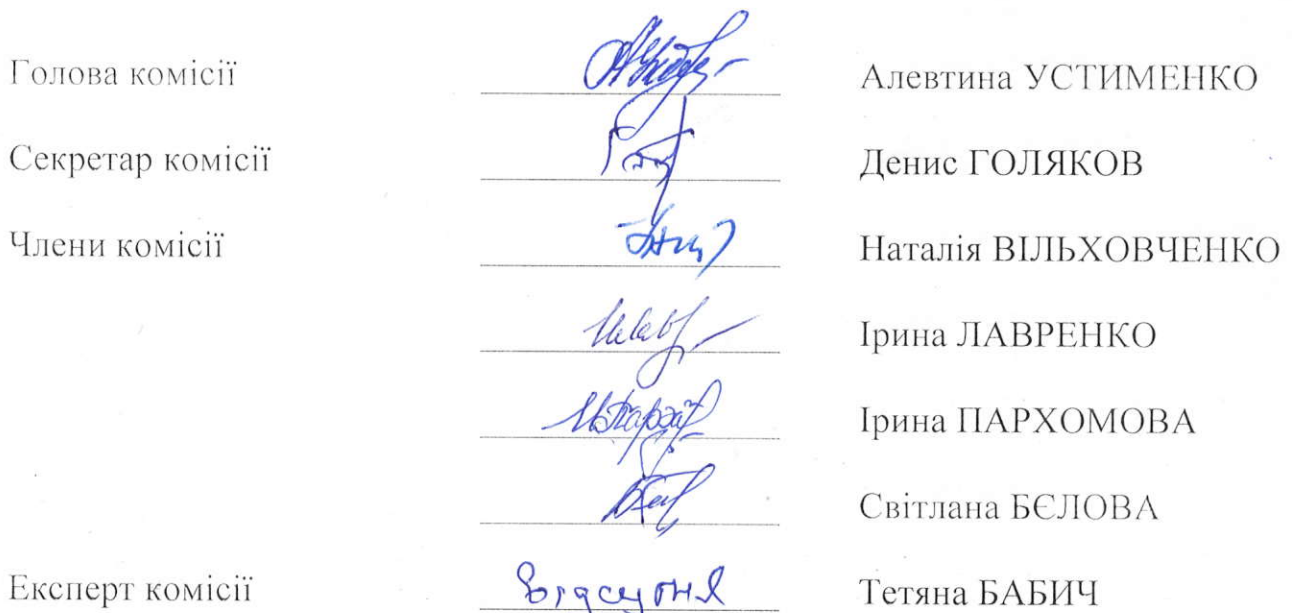 Голова комісії Алевтина УСТИМЕНКО
Секретар комісії Денис ГОЛЯКОВ
Члени комісії Наталія ВІЛЬХОВЧЕНКО
Ірина ЛАВРЕНКО
Ірина ПАРХОМОВА
Світлана БЄЛОВА
Експерт комісії відсутня Тетяна БАБИЧ